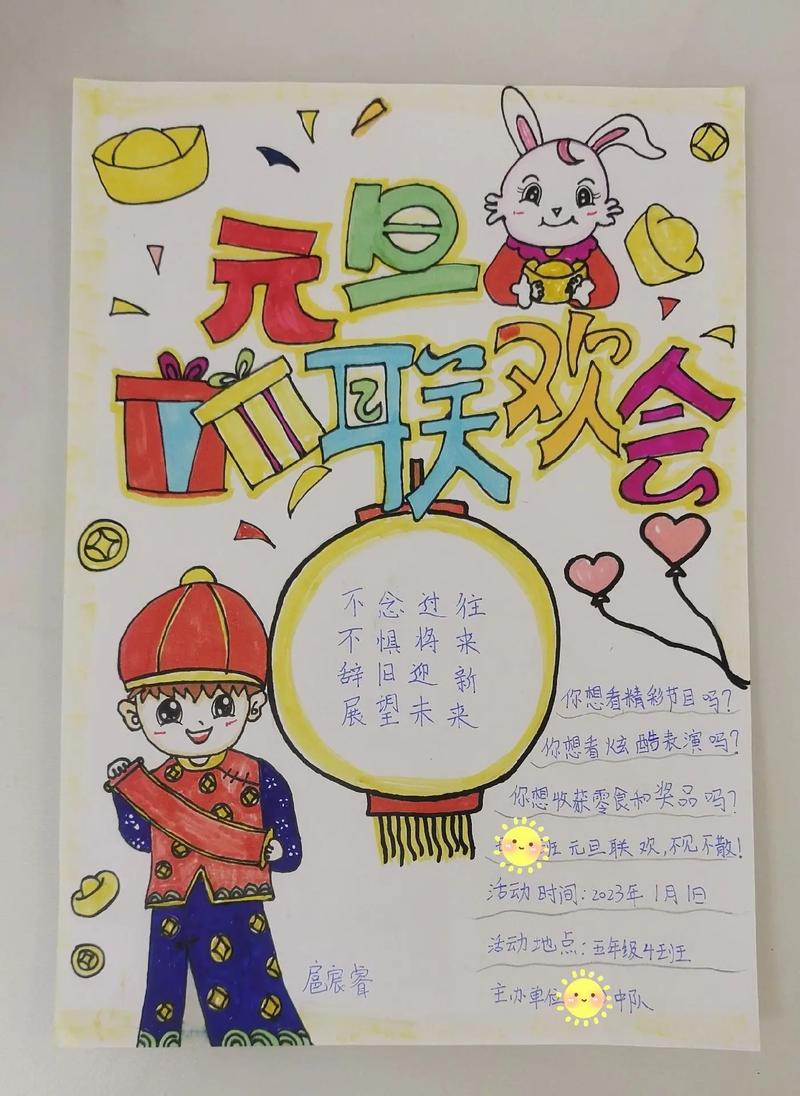 元旦
联欢会
不念过往
不惧将来
辞旧迎新
展望未来
你想看精彩节目吗?
你想看炫酷表演吗?
你想收获零食和奖品吗?
班元旦联欢,不见不散!
活动时间:2023年1月1日
活动地点:五年级4班班
主办单位 中队
扈宸睿